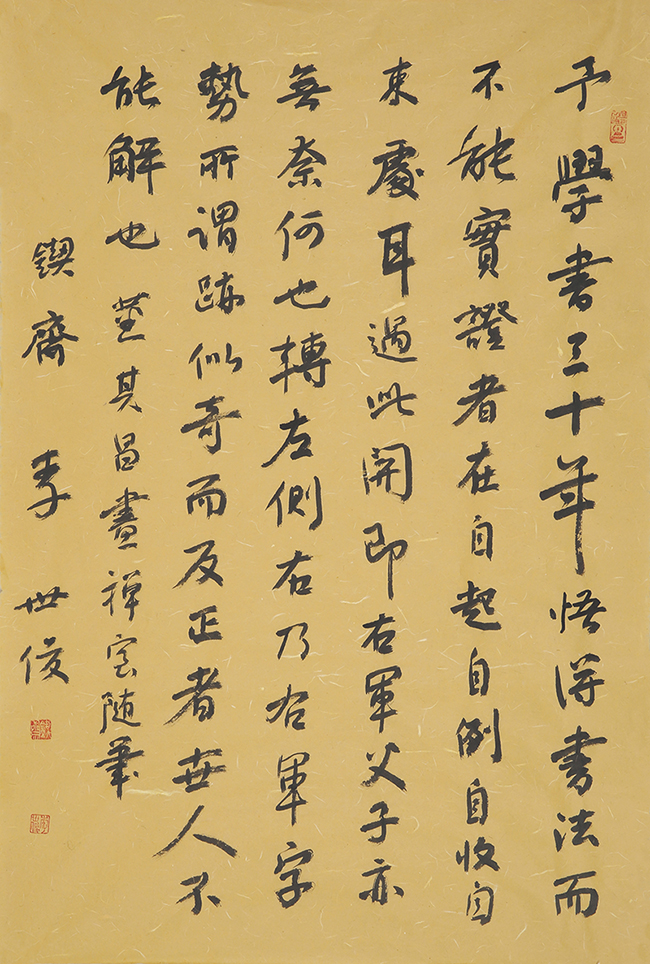 予學書三十年悟得書法而
不能實證者在自起自倒自收自
束處耳過此關即右軍父子亦
無奈何也轉左側右乃右軍字
勢所謂跡似奇而反正者世人不
能解也董其昌畫禪室隨筆
鍥齋 李世俊